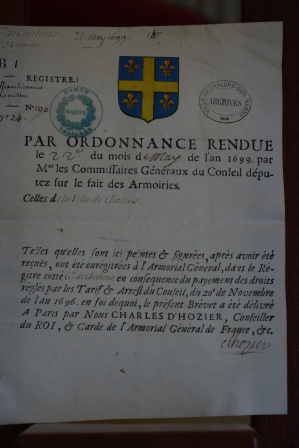 de Chalons 22. May 1699.
B I
REGISTRE I
N° 100
N° 24.
MARNE
ARCHIVES
VILLE DE CHALONS-SUR-MARNE
ARCHIVES
PAR ORDONNANCE RENDUE
le 22.e du mois de May de l'an 1699. par
M.rs les Commissaires Généraux du Conseil députez
sur le fait des Armoiries.
Celles de la Ville de Chalons
Telles qu'elles sont ici peintes & figurées, après avoir été
reçues, ont été enregîtrées à l'Armorial Général, dans le Régître
cotté de Chalons en conséquence du payement des droits
reglés par les Tarif & Arrest du Conseil, du 20.e de Novembre
de l'an 1696. en foi dequoi, le présent Brévet a été délivré
A Paris par Nous CHARLES D'HOZIER, Conseiller
du ROI, & Garde de l'Armorial Général de France, &c.
d'hozier